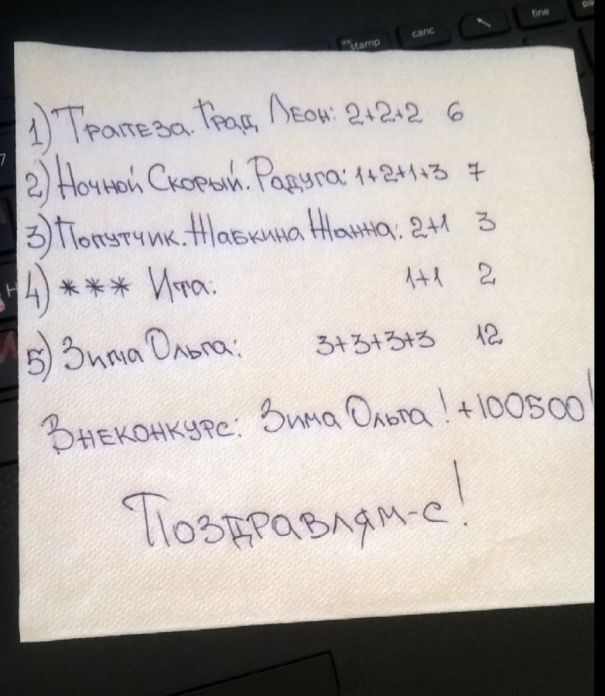 ins
stamp
canc
fine
7
1) Трапеза. Град Леон: 2+2+2 6
2) Ночной Скорый. Радуга: 1+2+1+3 7
3) Попутчик. Жабкина Жанна: 2+1 3
4) *** Ита: 1+1 2
5) Зима Ольга: 3+3+3+3 12
Внеконкурс: Зима Ольга! +100500!
Поздравлям-с!